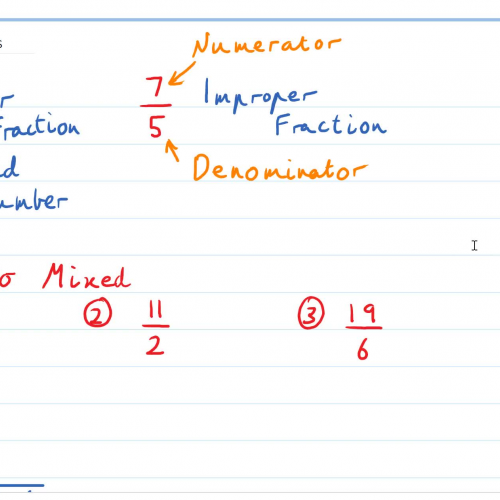 s
Numerator
r 7/5 Improper
Fraction Fraction
d Denominator
umber
o Mixed
② 11/2 ③ 19/6